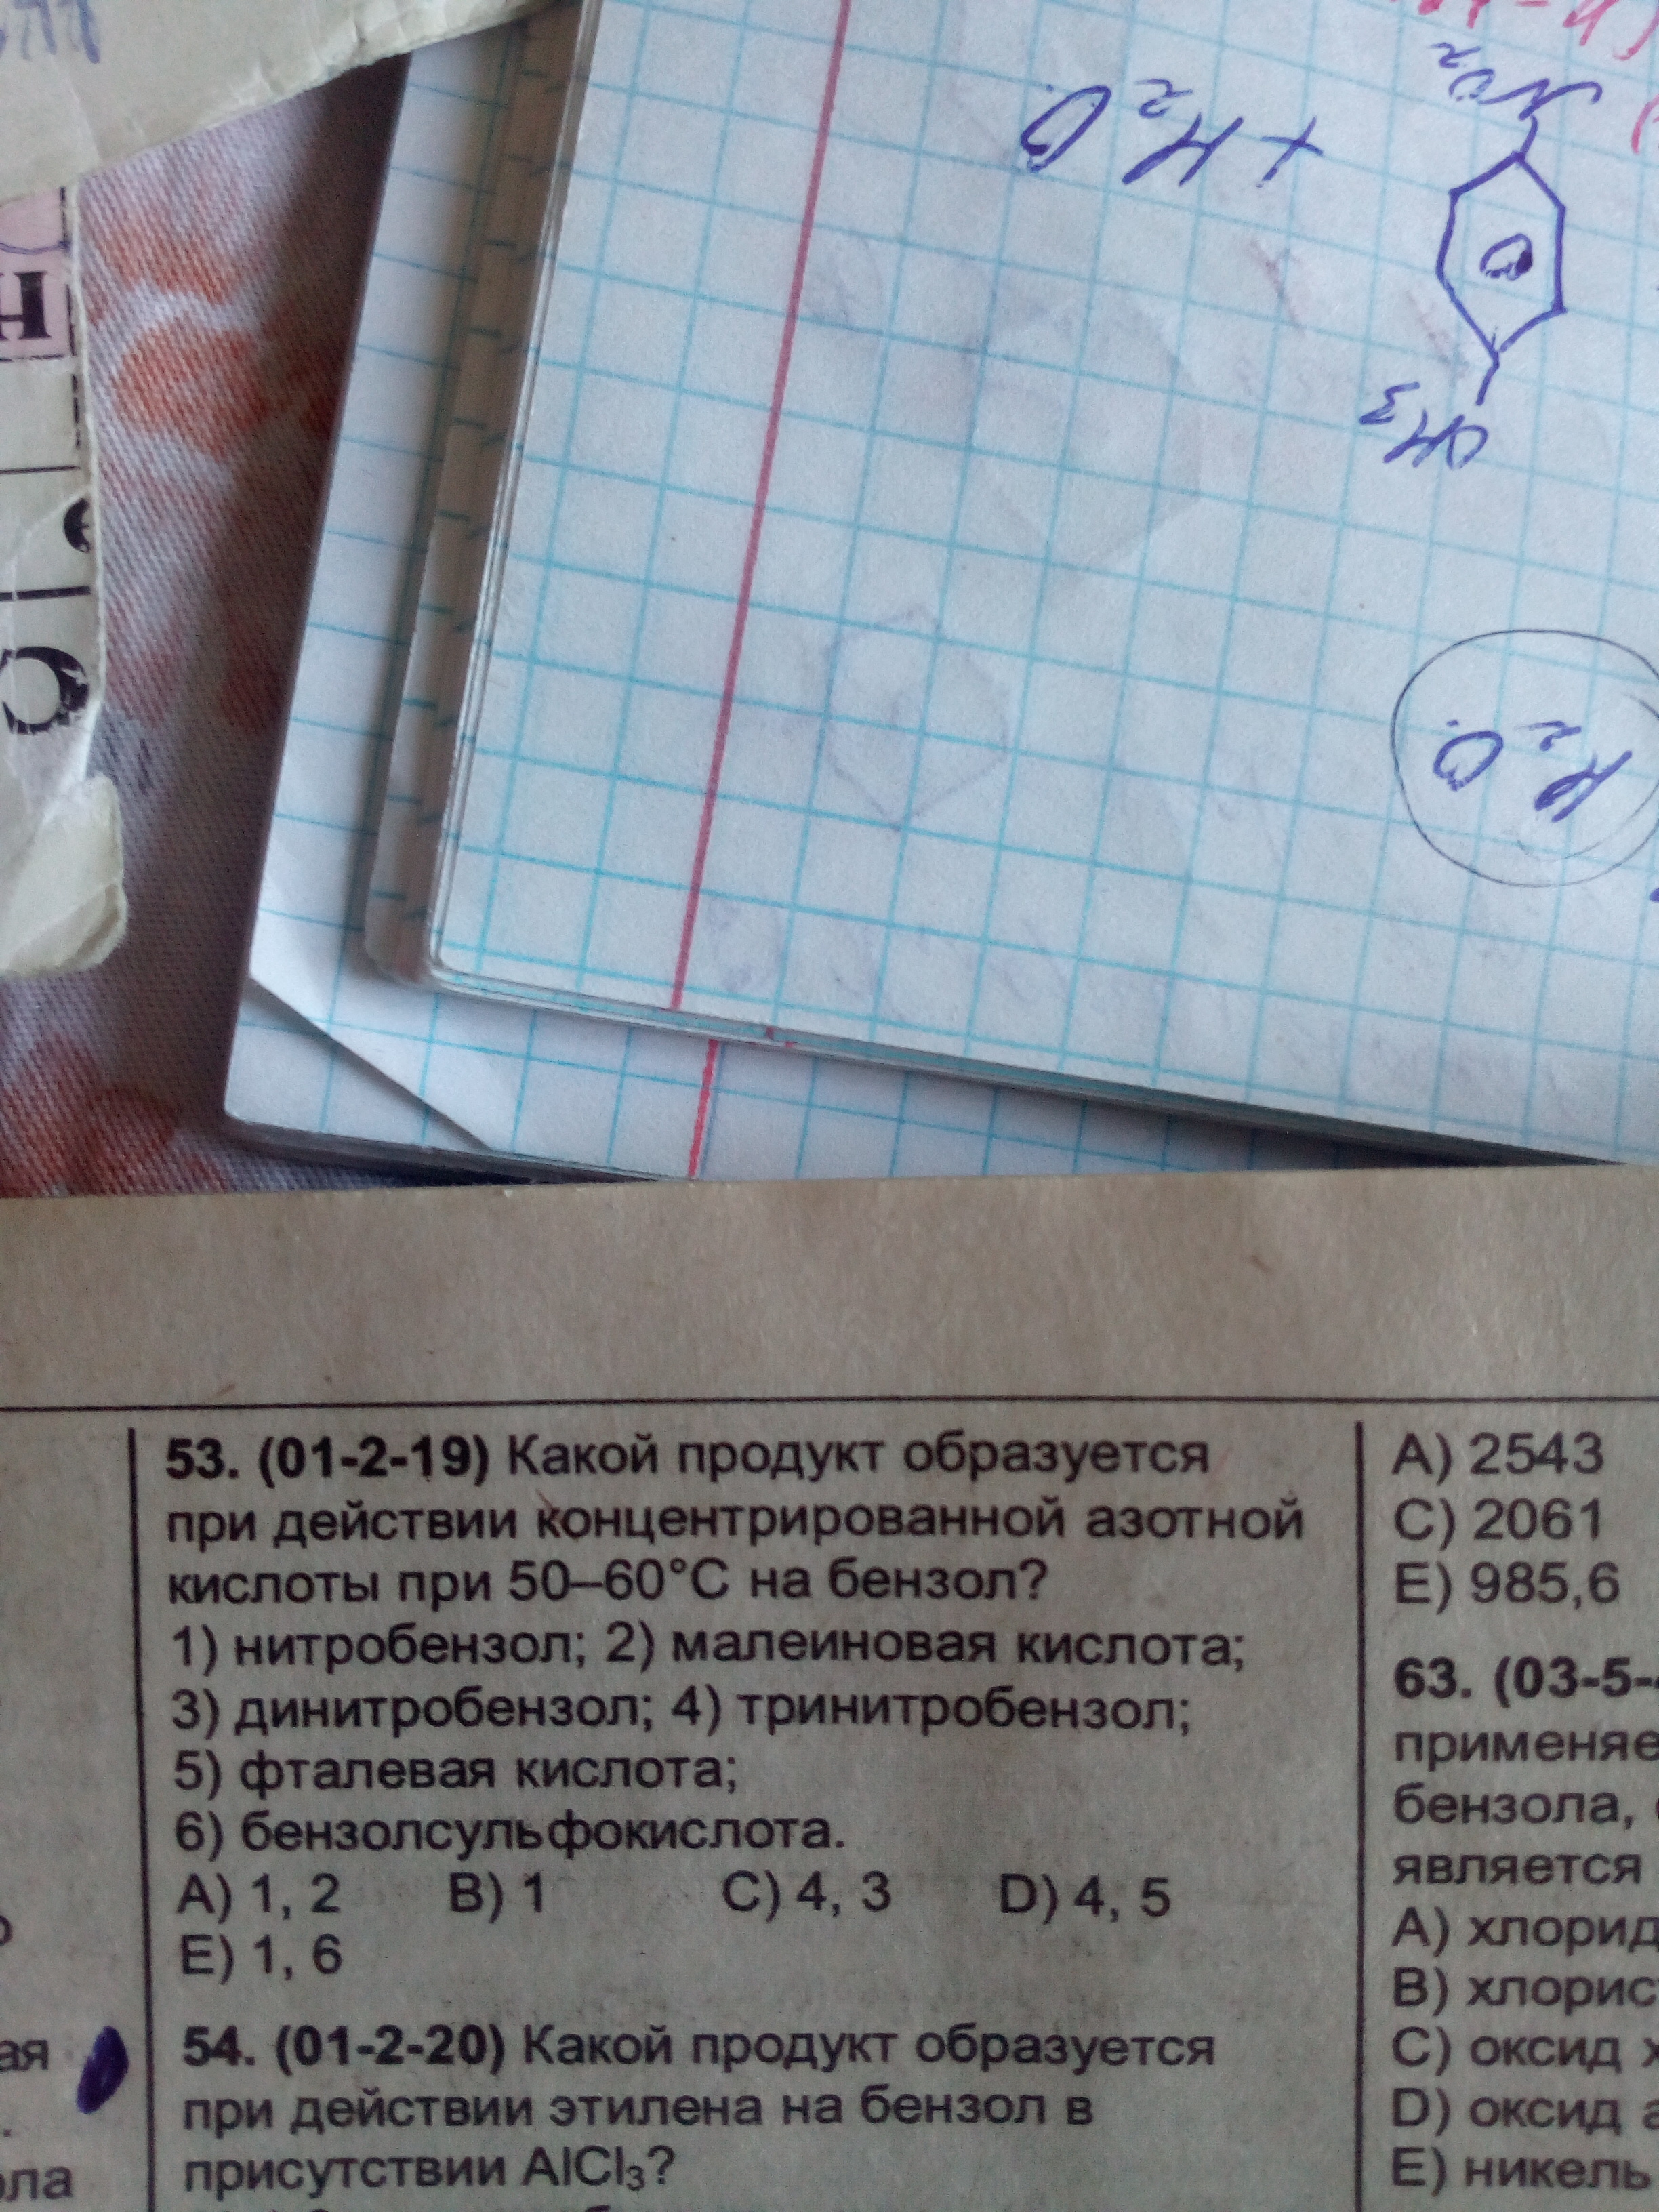 NO₂
+ H₂O
CH₃
H₂O
Н
е
С
53. (01-2-19) Какой продукт образуется
при действии концентрированной азотной
кислоты при 50–60°С на бензол?
1) нитробензол; 2) малеиновая кислота;
3) динитробензол; 4) тринитробензол;
5) фталевая кислота;
6) бензолсульфокислота.
A) 1, 2 B) 1 C) 4, 3 D) 4, 5
E) 1, 6
54. (01-2-20) Какой продукт образуется
при действии этилена на бензол в
присутствии AlCl₃?
A) 2543
C) 2061
E) 985,6
63. (03-5-
применяе
бензола,
является
A) хлорид
B) хлорис
C) оксид
D) оксид
E) никель
ая